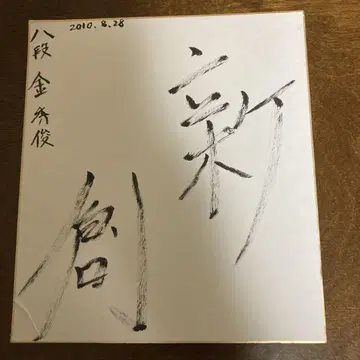 新
創
2010.8.28
八段 金秀俊